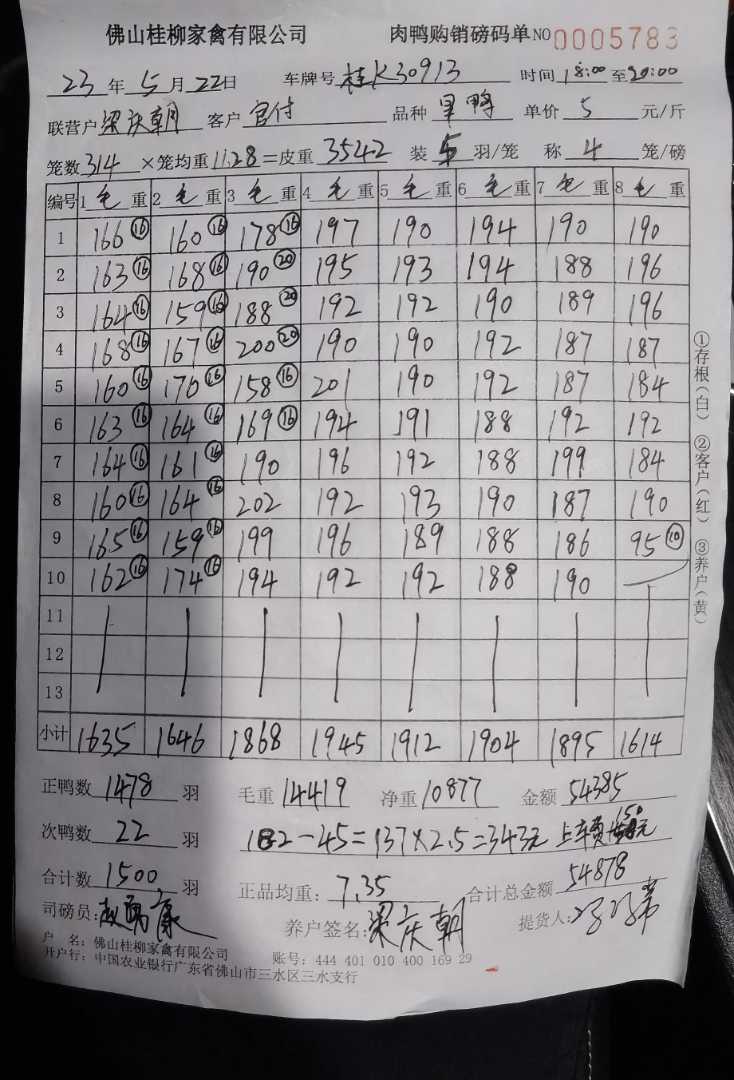 佛山桂柳家禽有限公司 肉鸭购销磅码单 NO 0005783
23 年 5 月 22 日 车牌号 桂K30913 时间 18:00 至 20:00
联营户 梁庆朝 客户 官付 品种 单价 5 元/斤
笼数 314 ×笼均重 11.28 =皮重 3542 装 5 羽/笼 称 4 笼/磅
编号 1 毛 重 2 毛 重 3 毛 重 4 毛 重 5 毛 重 6 毛 重 7 毛 重 8 毛 重
1 166 ⑯ 160 ⑯ 178 ⑯ 197 190 194 190 190
2 163 ⑯ 168 ⑯ 190 ⑳ 195 193 194 188 196
3 164 ⑯ 159 ⑯ 188 ⑳ 192 192 190 189 196
4 168 ⑯ 167 ⑯ 200 ⑳ 190 190 192 187 187
5 160 ⑯ 170 ⑯ 158 ⑯ 201 190 192 187 184
6 163 ⑯ 164 ⑯ 169 ⑯ 194 191 188 192 192
7 164 ⑯ 161 ⑯ 190 196 192 188 199 184
8 160 ⑯ 164 ⑯ 202 192 193 190 187 190
9 165 ⑯ 159 ⑯ 199 196 189 188 186 95 ⑩
10 162 ⑯ 174 ⑯ 194 192 192 188 190
11
12
13
小计 1635 1646 1868 1945 1912 1904 1895 1614
①存根(白) ②客户(红) ③养户(黄)
正鸭数 1478 羽 毛重 14419 净重 10877 金额 54385
次鸭数 22 羽 182-45=137×2.5=343元 上车费 150元
合计数 1500 羽 正品均重: 7.35 合计总金额 54878
司磅员: 养户签名: 梁庆朝 提货人:
户 名: 佛山桂柳家禽有限公司 账号: 444 401 010 400 169 29
开户行: 中国农业银行广东省佛山市三水区三水支行